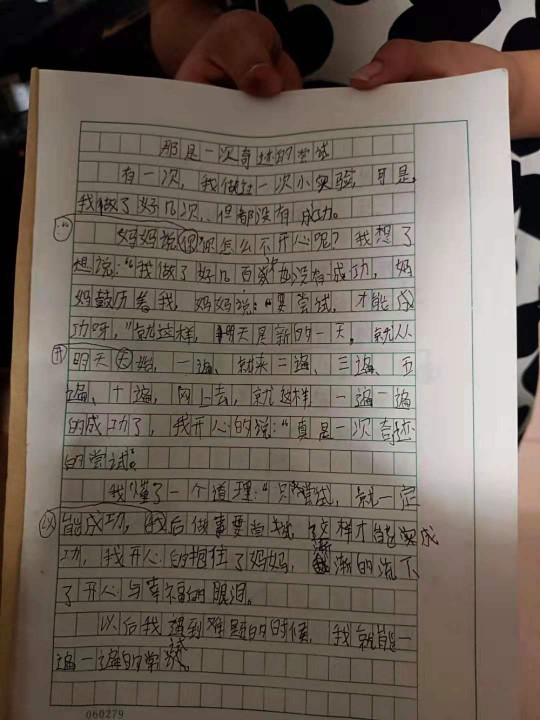 那是一次奇迹的尝试
有一次，我做过一次小实验，可是，
我做了好几次，但都没有成功。
：“
妈妈说你怎么不开心呢？我想了
想说：“我做了好几百次也没有成功，妈
妈鼓历着我，妈妈说：“要尝试，才能成
功呀，”就这样，明天是新的一天，就从
开
明天始，一遍、就来二遍、三遍、五
遍、十遍，网上去，就这样一遍一遍
的成功了，我开心的说：“真是一次奇迹
的尝试”。
我懂了一个道理：“只尝试，就一定
以
能成功，我后做事要尝试，这样才能成
功，我开心的抱住了妈妈，渐渐的流下
了开心与幸福的眼泪。
以后我遇到难题的时候，我就能一
遍一遍的尝试。
060279